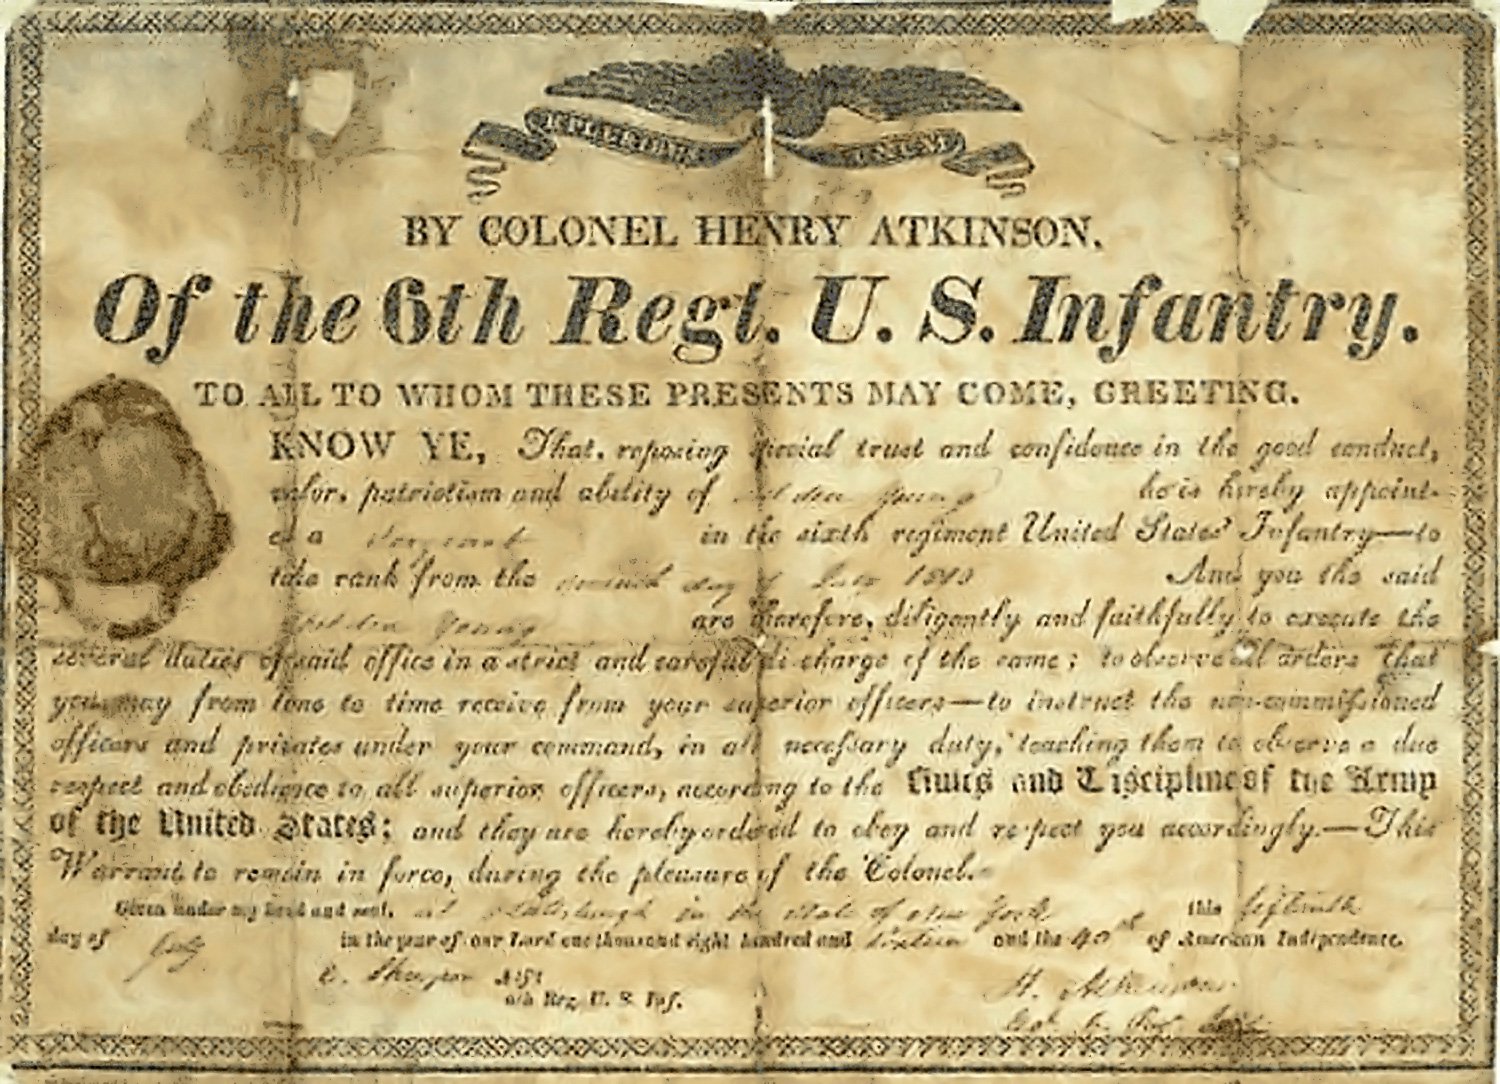 BY COLONEL HENRY ATKINSON.
Of the 6th Regt. U. S. Infantry.
TO ALL TO WHOM THESE PRESENTS MAY COME, GREETING.
KNOW YE, That, reposing special trust and confidence in the good conduct,
valor, patriotism and ability of Young he is hereby appoint-
ed a Sergeant in the sixth regiment United States' Infantry—to
take rank from the day of July And you the said
Young are therefore, diligently and faithfully to execute the
several duties of said office in a strict and careful discharge of the same; to observe all orders that
you may from time to time receive from your superior officers—to instruct the non-commissioned
officers and privates under your command, in all necessary duty, teaching them to observe a due
respect and obedience to all superior officers, according to the Rules and Discipline of the Army
of the United States; and they are hereby ordered to obey and respect you accordingly.—This
Warrant to remain in force, during the pleasure of the Colonel.
Given under my hand and seal, at Plattsburgh in the State of New York this fifteenth
day of July in the year of our Lord one thousand eight hundred and sixteen and the 40th of American Independence.
Adjt H. Atkinson
6th Reg. U. S. Inf. Col. 6 Inf.